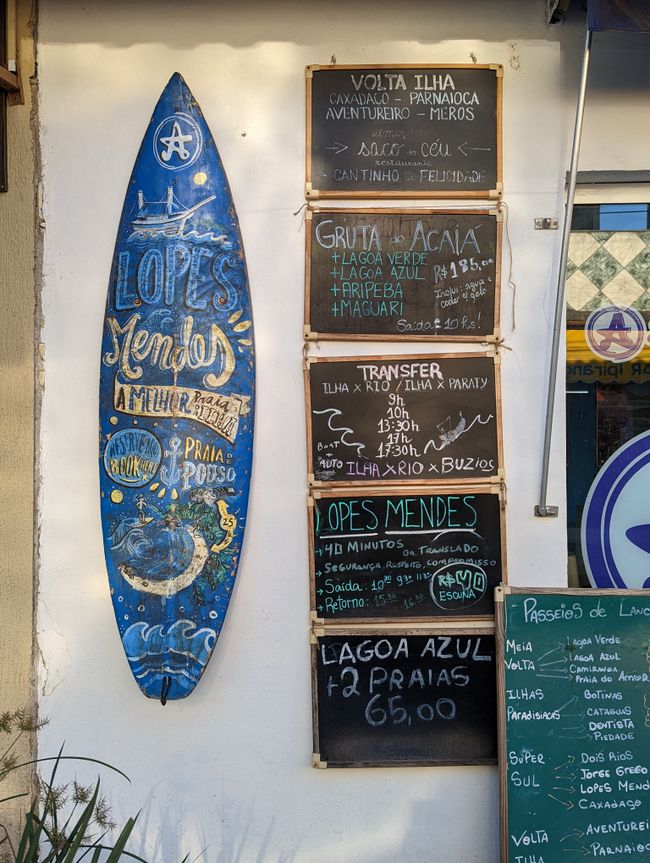 LOPES
Mendes
A MELHOR PRAIA
RESERVE AQUI
BOOK HERE
PRAIA
POUSO
25'
VOLTA ILHA
CAXADAÇO - PARNAIOCA
AVENTUREIRO - MEROS
almoço
saco do céu
restaurante
CANTINHO da FELICIDADE
GRUTA do ACAIÁ
+LAGOA VERDE
+LAGOA AZUL
+ARIPEBA
+MAGUARI
R$185,00
Inclui: água e
Saída: 10hs!
TRANSFER
ILHA x RIO / ILHA x PARATY
9h
10h
13:30h
17h
17:30h
BOAT
+
AUTO
ILHA x RIO x BUZIOS
LOPES MENDES
→ 40 MINUTOS DE TRANSLADO
→ SEGURANÇA, RESPEITO, COMPROMISSO
→ Saída: 10:30 9:30 11:30
→ Retorno: 15:30 16:30
R$40
ESCUNA
LAGOA AZUL
+2 PRAIAS
65,00
AR ipiran
PASSEIOS de LANC
MEIA
VOLTA
LAGOA VERDE
LAGOA AZUL
CAMIRANGA
PRAIA DO AMOR
ILHAS
PARADISIACAS
BOTINAS
CATAGUAS
DENTISTA
PIEDADE
SUPER
SUL
DOIS RIOS
JORGE GREGO
LOPES MEND
CAXADAÇO
VOLTA
ILHA
AVENTUREI
PARNAIO